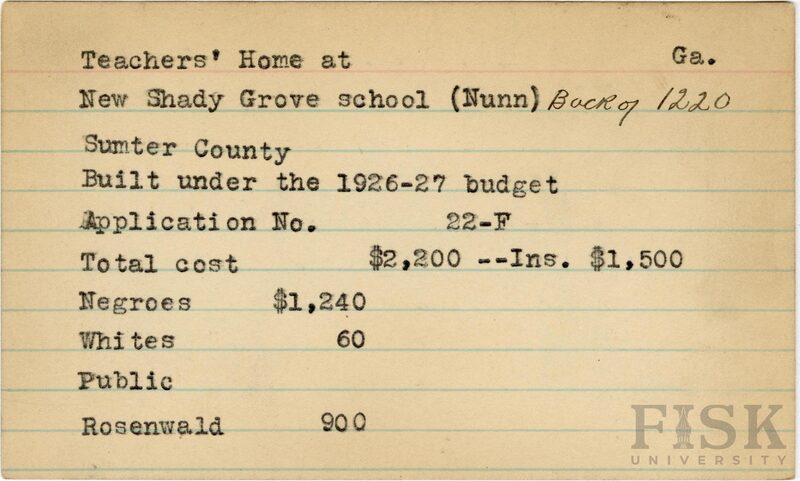 Teachers' Home at Ga.
New Shady Grove school (Nunn) Back of 1220
Sumter County
Built under the 1926-27 budget
Application No. 22-F
Total cost $2,200 --Ins. $1,500
Negroes $1,240
Whites 60
Public
Rosenwald 900
FISK
UNIVERSITY